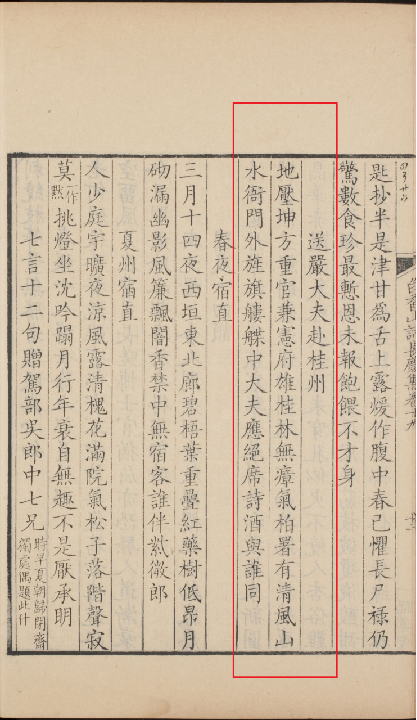 白香山詩長慶集卷十九
匙抄半是津甘為舌上露煖作腹中春已懼長尸祿仍
驚數食珍最慙恩未報飽餧不才身
送嚴大夫赴桂州
地壓坤方重官兼憲府雄桂林無瘴氣柏署有清風山
水衙門外旌旗艛艓中大夫應絕席詩酒與誰同
春夜宿直
三月十四夜西垣東北廊碧梧葉重疊紅藥樹低昂月
砌漏幽影風簾飄闇香禁中無宿客誰伴紫微郎
夏州宿直
人少庭宇曠夜涼風露清槐花滿院氣松子落階聲寂
莫一作默挑燈坐沈吟蹋月行年衰自無趣不是厭承明
七言十二句贈駕部吳郎中七兄時早夏朝歸閉齋獨處偶題此什